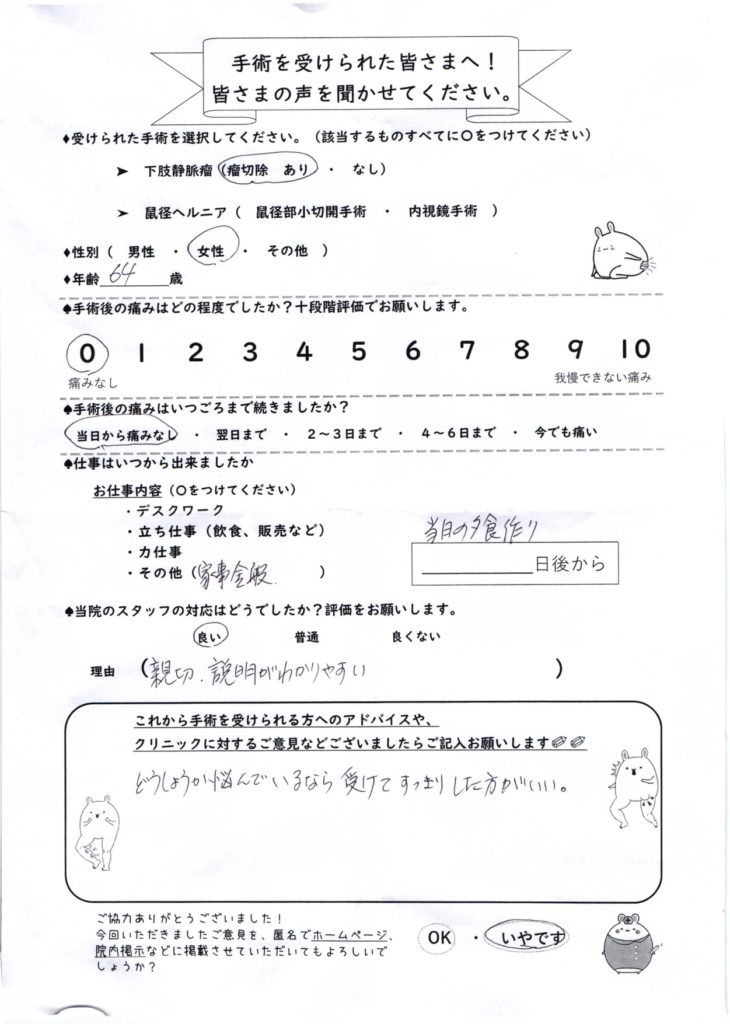 手術を受けられた皆さまへ！
皆さまの声を聞かせてください。
♦受けられた手術を選択してください。（該当するものすべてに〇をつけてください）
➤ 下肢静脈瘤（瘤切除　あり　・　なし）
➤ 鼠径ヘルニア（　鼠径部小切開手術　・　内視鏡手術　）
♦性別（　男性　・　女性　・　その他　）
♦年齢 64 歳
♠手術後の痛みはどの程度でしたか？十段階評価でお願いします。
0 1 2 3 4 5 6 7 8 9 10
痛みなし 我慢できない痛み
♠手術後の痛みはいつごろまで続きましたか？
当日から痛みなし　・　翌日まで　・　２～３日まで　・　４～６日まで　・　今でも痛い
♠仕事はいつから出来ましたか
お仕事内容（〇をつけてください）
・デスクワーク
・立ち仕事（飲食、販売など）
・力仕事
・その他（家事全般　）
当日の夕食作り
＿＿＿＿＿日後から
♠当院のスタッフの対応はどうでしたか？評価をお願いします。
良い　普通　良くない
理由（親切、説明がわかりやすい　）
これから手術を受けられる方へのアドバイスや、
クリニックに対するご意見などございましたらご記入お願いします
どうしようか悩んでいるなら 受けて すっきりした方がいい。
ご協力ありがとうございました！
今回いただきましたご意見を、匿名でホームページ、
院内掲示などに掲載させていただいてもよろしいで
しょうか？
OK　・　いやです